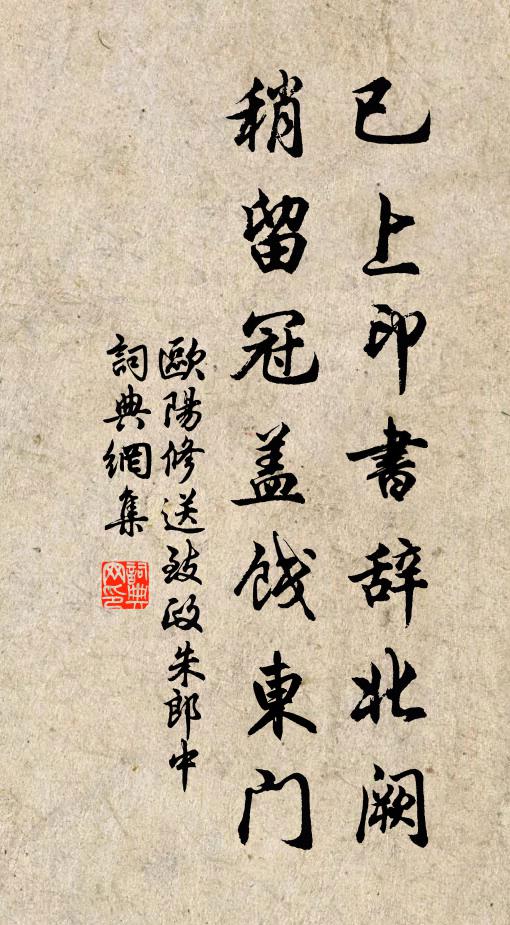 已上印書辞北阙
稍留冠盖饯東门
歐陽修送致政朱郎中
詞典網集
詞典
网印